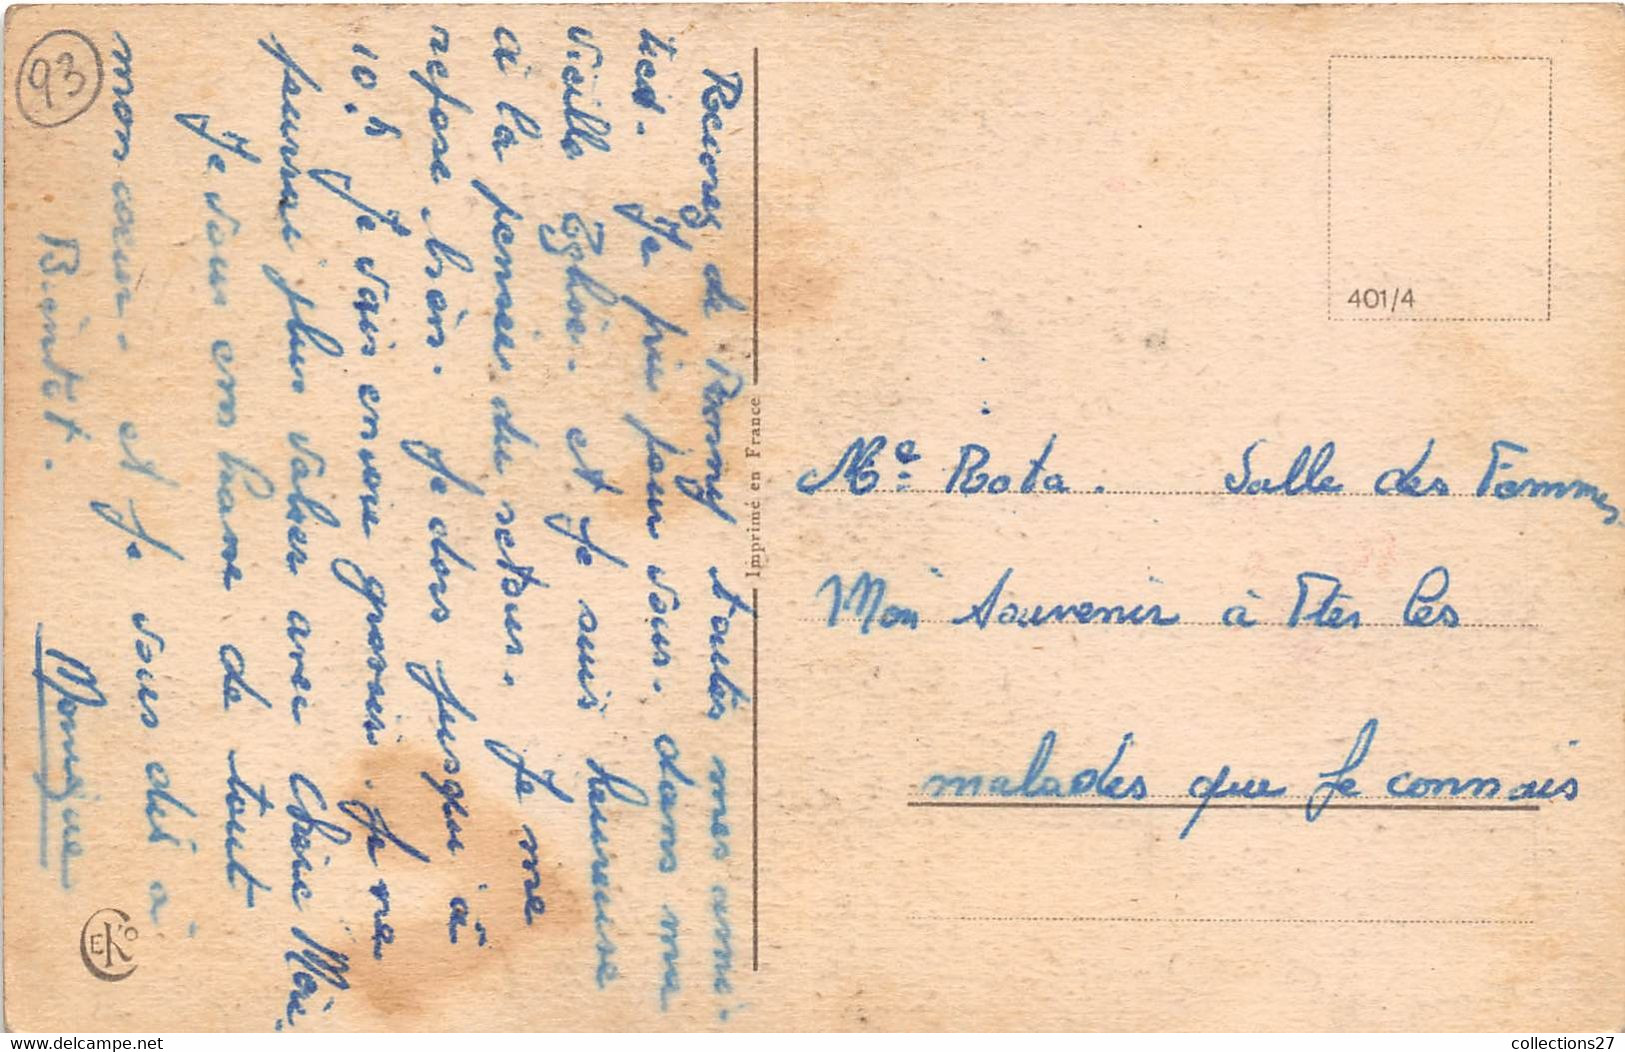 93
Recevez de Rosny toutes mes ami-
tiés. Je prie pour vous. dans ma
vieille Eglise. et Je suis heureuse
à la pensée du retour. Je me
repose bien. Je dors jusqu'à
10.h Je vais encore grossir. Je ne
pourrai plus valser avec Chère Mère,
Je vous embrasse de tout
mon cœur. et Je vous dis à
Bientôt.
Monique
Imprimé en France
EKO
401/4
Me Rota. Salle des Femmes
Mon Souvenir à Ttes les
malades que Je connais
www.delcampe.net
collections27